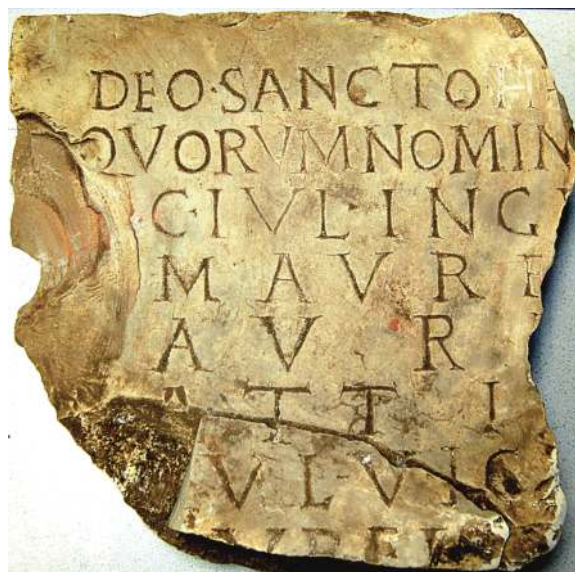 DEO·SANCTO
QVORVMNOMIN
C·IVL·ING
MAVR
AVR
ATTI
VL·VIC